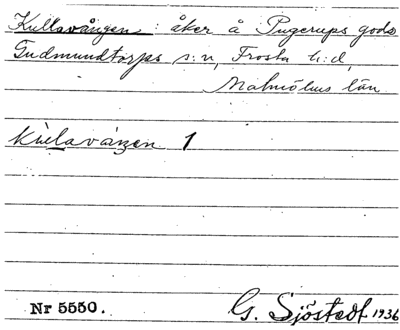 Kullavången : åker å Pugerups gods
Gudmundtorps s:n, Frosta h:d,
Malmöhus län
kùlavàŋen 1
Nr 5550.
G. Sjöstedt 1936